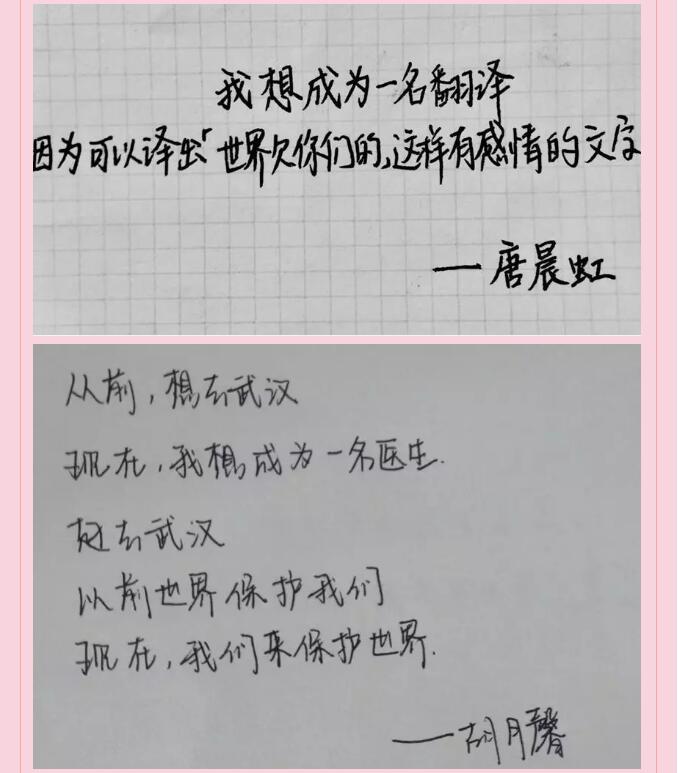 我想成为一名翻译
因为可以译出「世界欠你们的」这样有感情的文字
——唐晨虹
从前，想去武汉
现在，我想成为一名医生.
赶去武汉
以前世界保护我们
现在，我们来保护世界.
——胡月馨